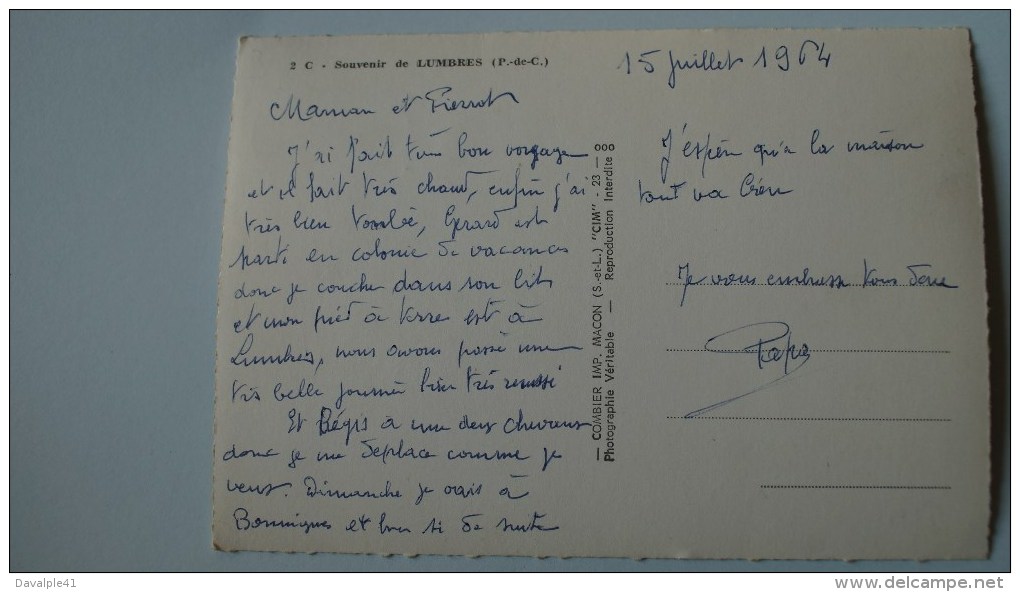 2 C - Souvenir de LUMBRES (P.-de-C.)
15 juillet 1964
Maman et Pierrot
J'ai fait très bon voyage
et il fait très chaud, enfin j'ai
très bien tombé, Gerard est
parti en colonie de vacances
donc je couche dans son lit
et mon pied à terre est à
Lumbres, nous avons passé une
très belle journée hier très réussi
Et Régis à une deux chevaux
donc je me deplace comme je
veux. Dimanche je vais à
et de suite
— COMBIER IMP. MACON (S.-et-L.) "CIM" - 23 — 000
Photographie Véritable — Reproduction Interdite
J'espèr qu'a la maison
tout va bien
Je vous embrasse tous deux
Papa
Davalple41
http://www.delcampe.net